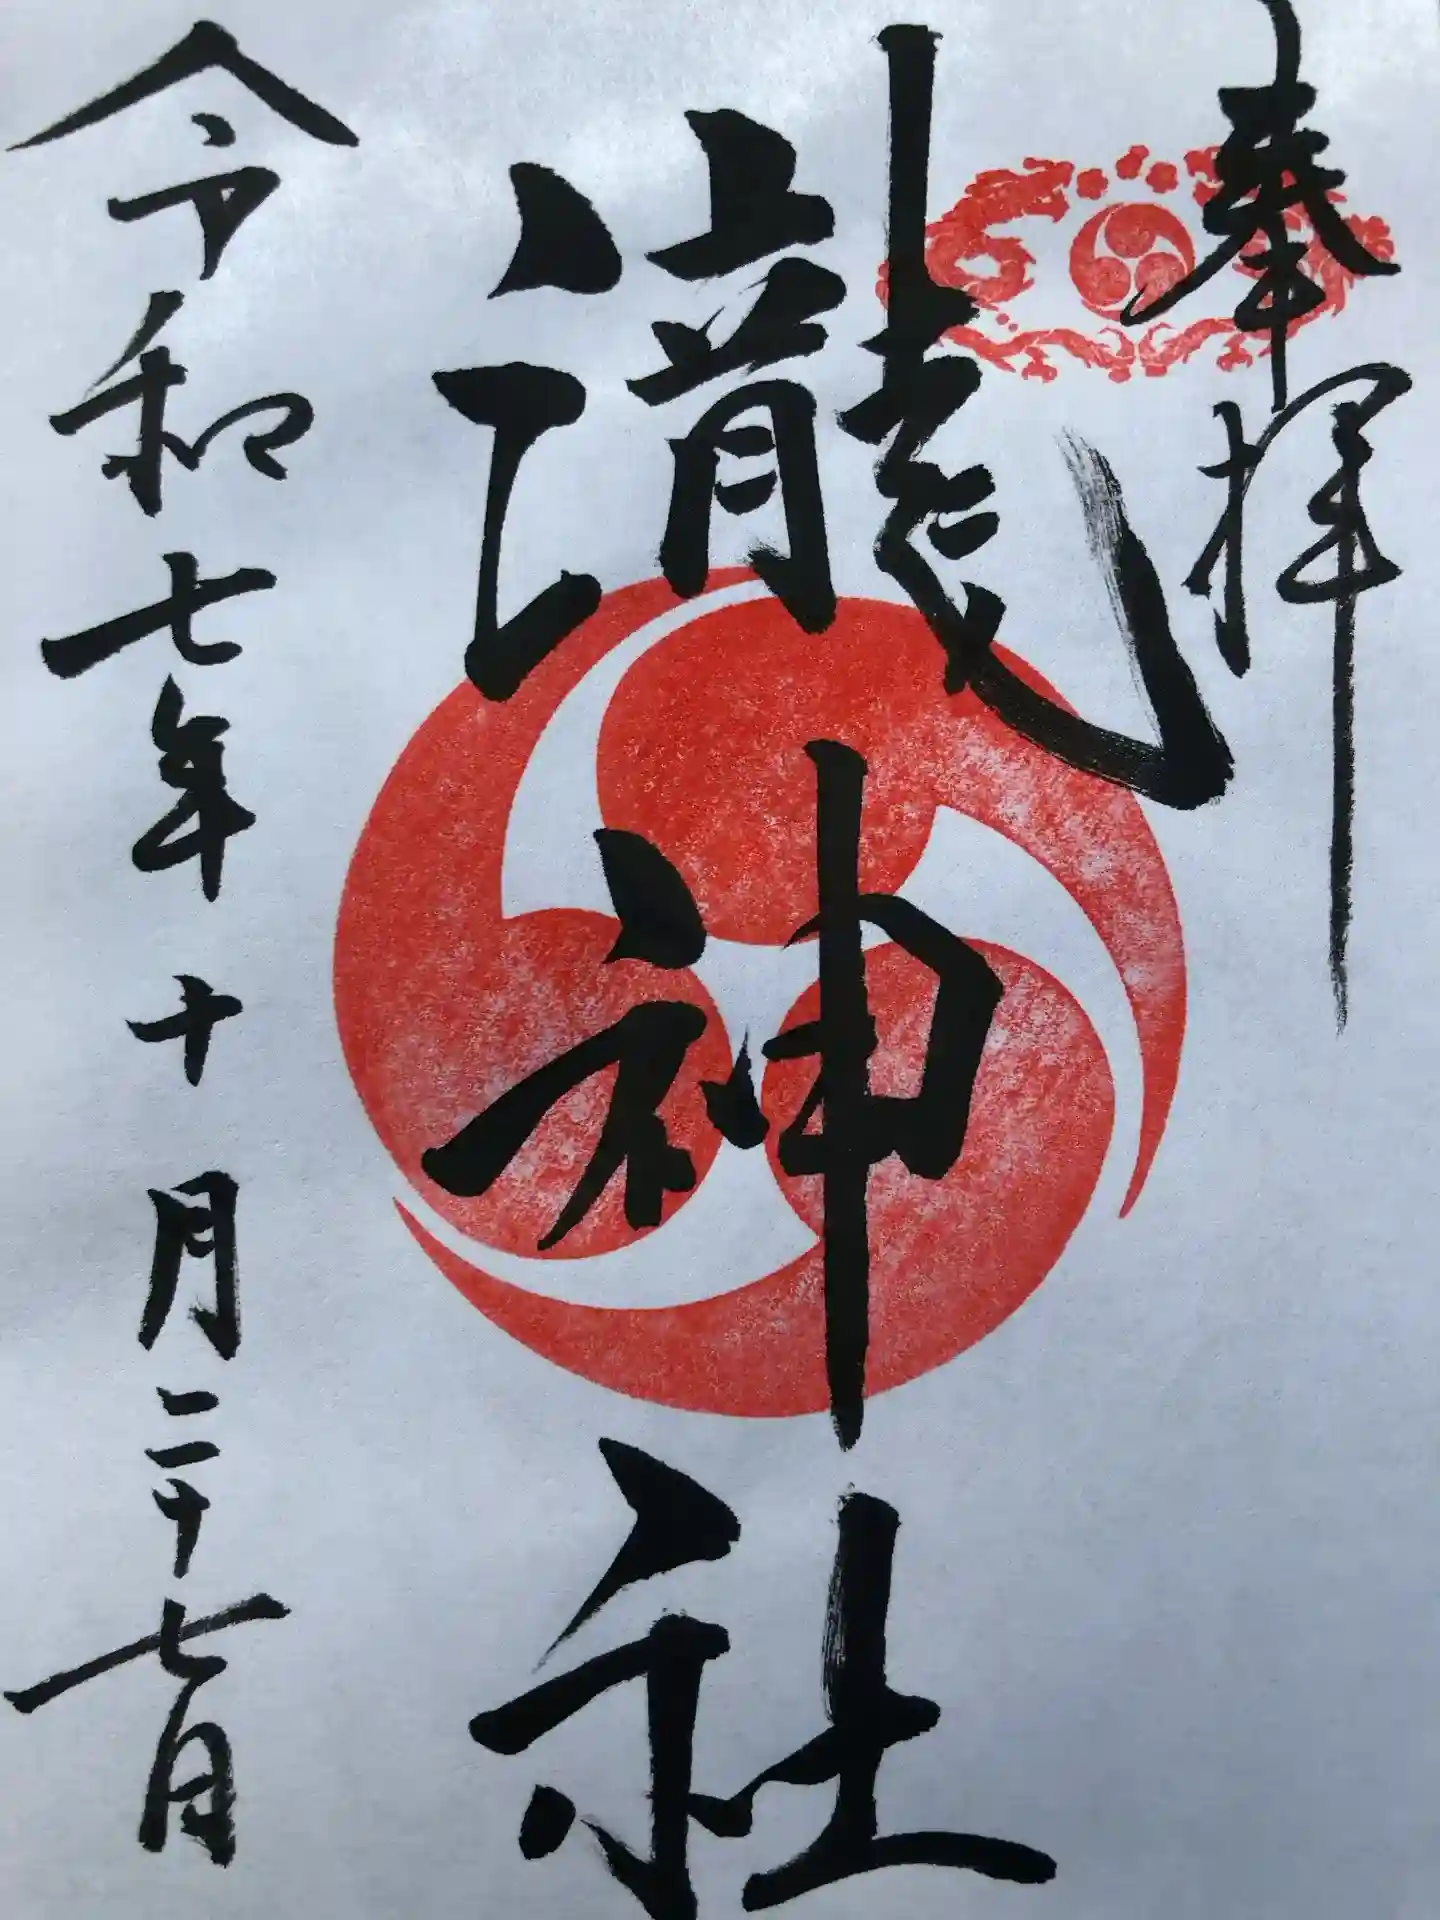 奉拝
瀧神社
令和七年十月二十七日